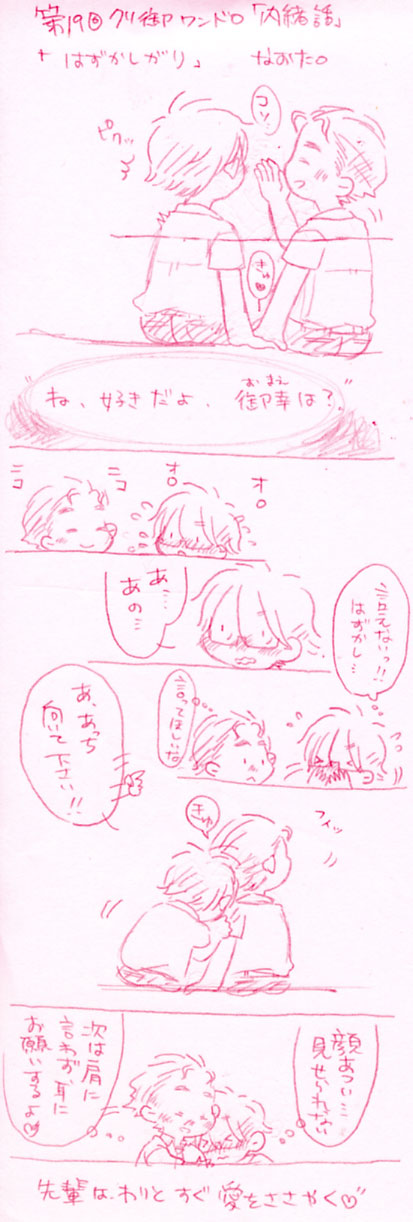 第19回クリ御ワンドロ「内緒話」
「はずかしがり」 なおたo
コソ
ピクッ
きゅ♡
おまえ
"ね、好きだよ、御幸は?"
ニコ
ニコ
オロ
オロ
あ…
あの…
言えないっ!!
はずかし…
言ってほしいな
あ、あっち
向いて下さい!!
フイッ
きゅ
顔あつい…
見せられない
次は肩に
言わず、耳に
お願いするよ♡
先輩は、わりと すぐ 愛をささやく♡"